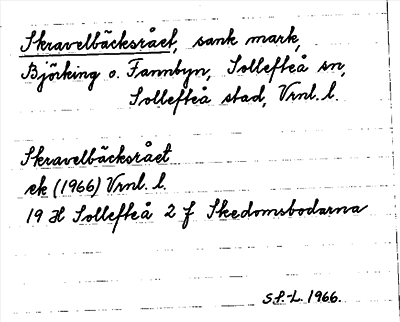 Skravelbäcksrået, sank mark,
Björking o. Fannbyn, Sollefteå sn,
Sollefteå stad, Vrnl. l.
Skravelbäcksrået
ek (1966) Vrnl. l.
19 H Sollefteå 2 f Skedomsbodarna
S.f.-L. 1966.